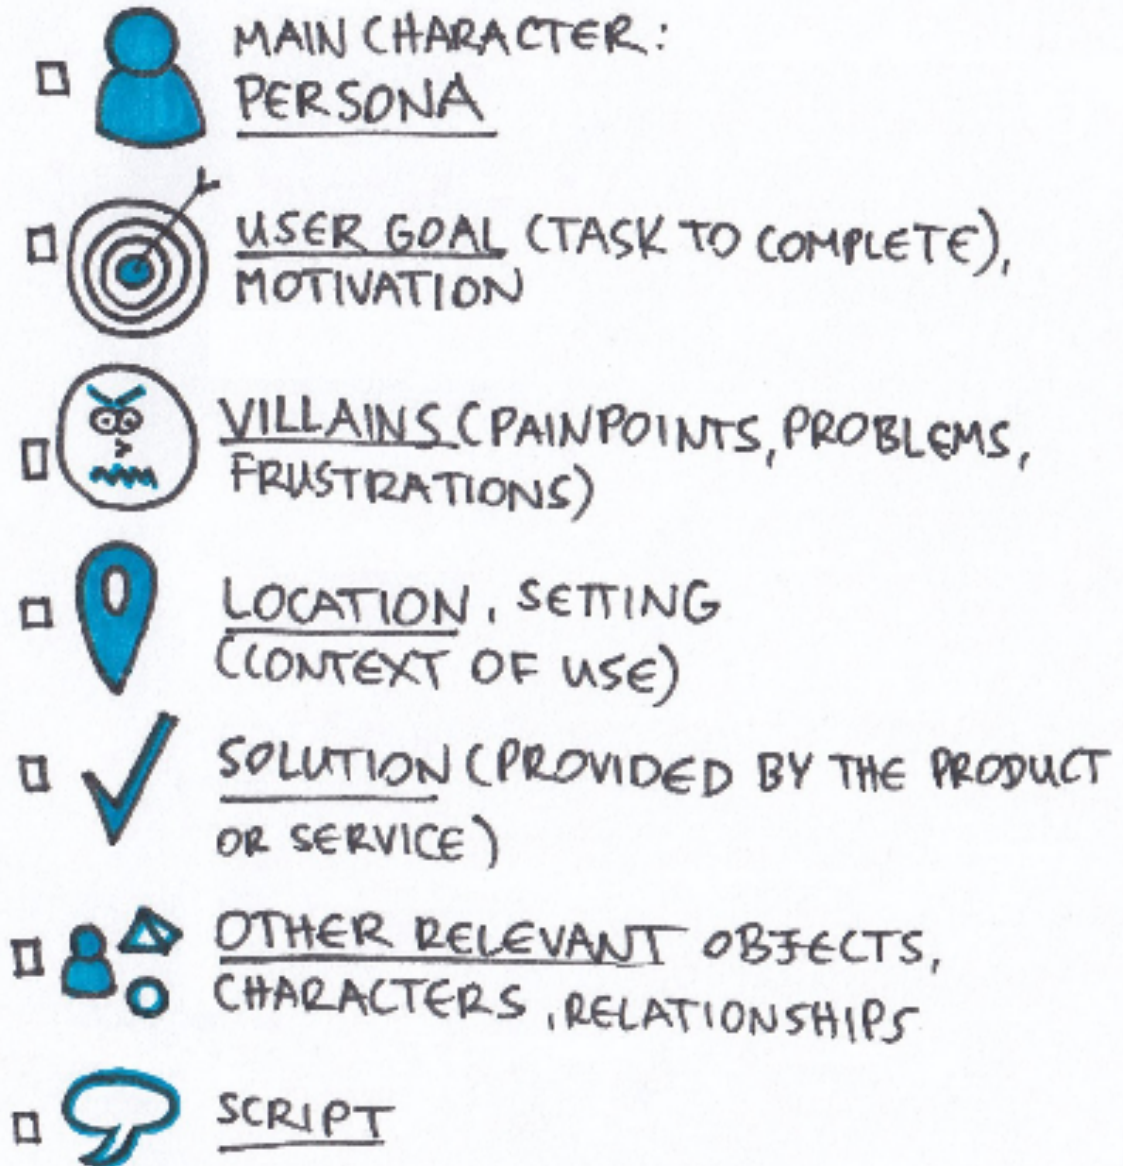 MAIN CHARACTER:
PERSONA
USER GOAL (TASK TO COMPLETE),
MOTIVATION
VILLAINS (PAINPOINTS, PROBLEMS,
FRUSTRATIONS)
LOCATION, SETTING
(CONTEXT OF USE)
SOLUTION (PROVIDED BY THE PRODUCT
OR SERVICE)
OTHER RELEVANT OBJECTS,
CHARACTERS, RELATIONSHIPS
SCRIPT